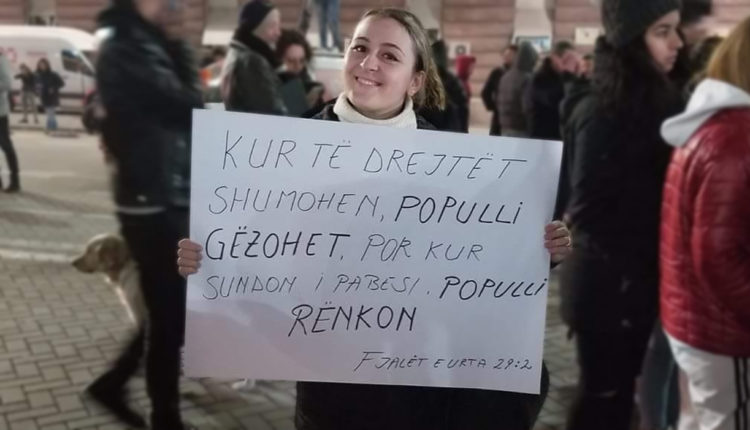 KUR TË DREJTËT
SHUMOHEN, POPULLI
GËZOHET, POR KUR
SUNDON I PABESI, POPULLI
RËNKON
FJALËT E URTA 29:2